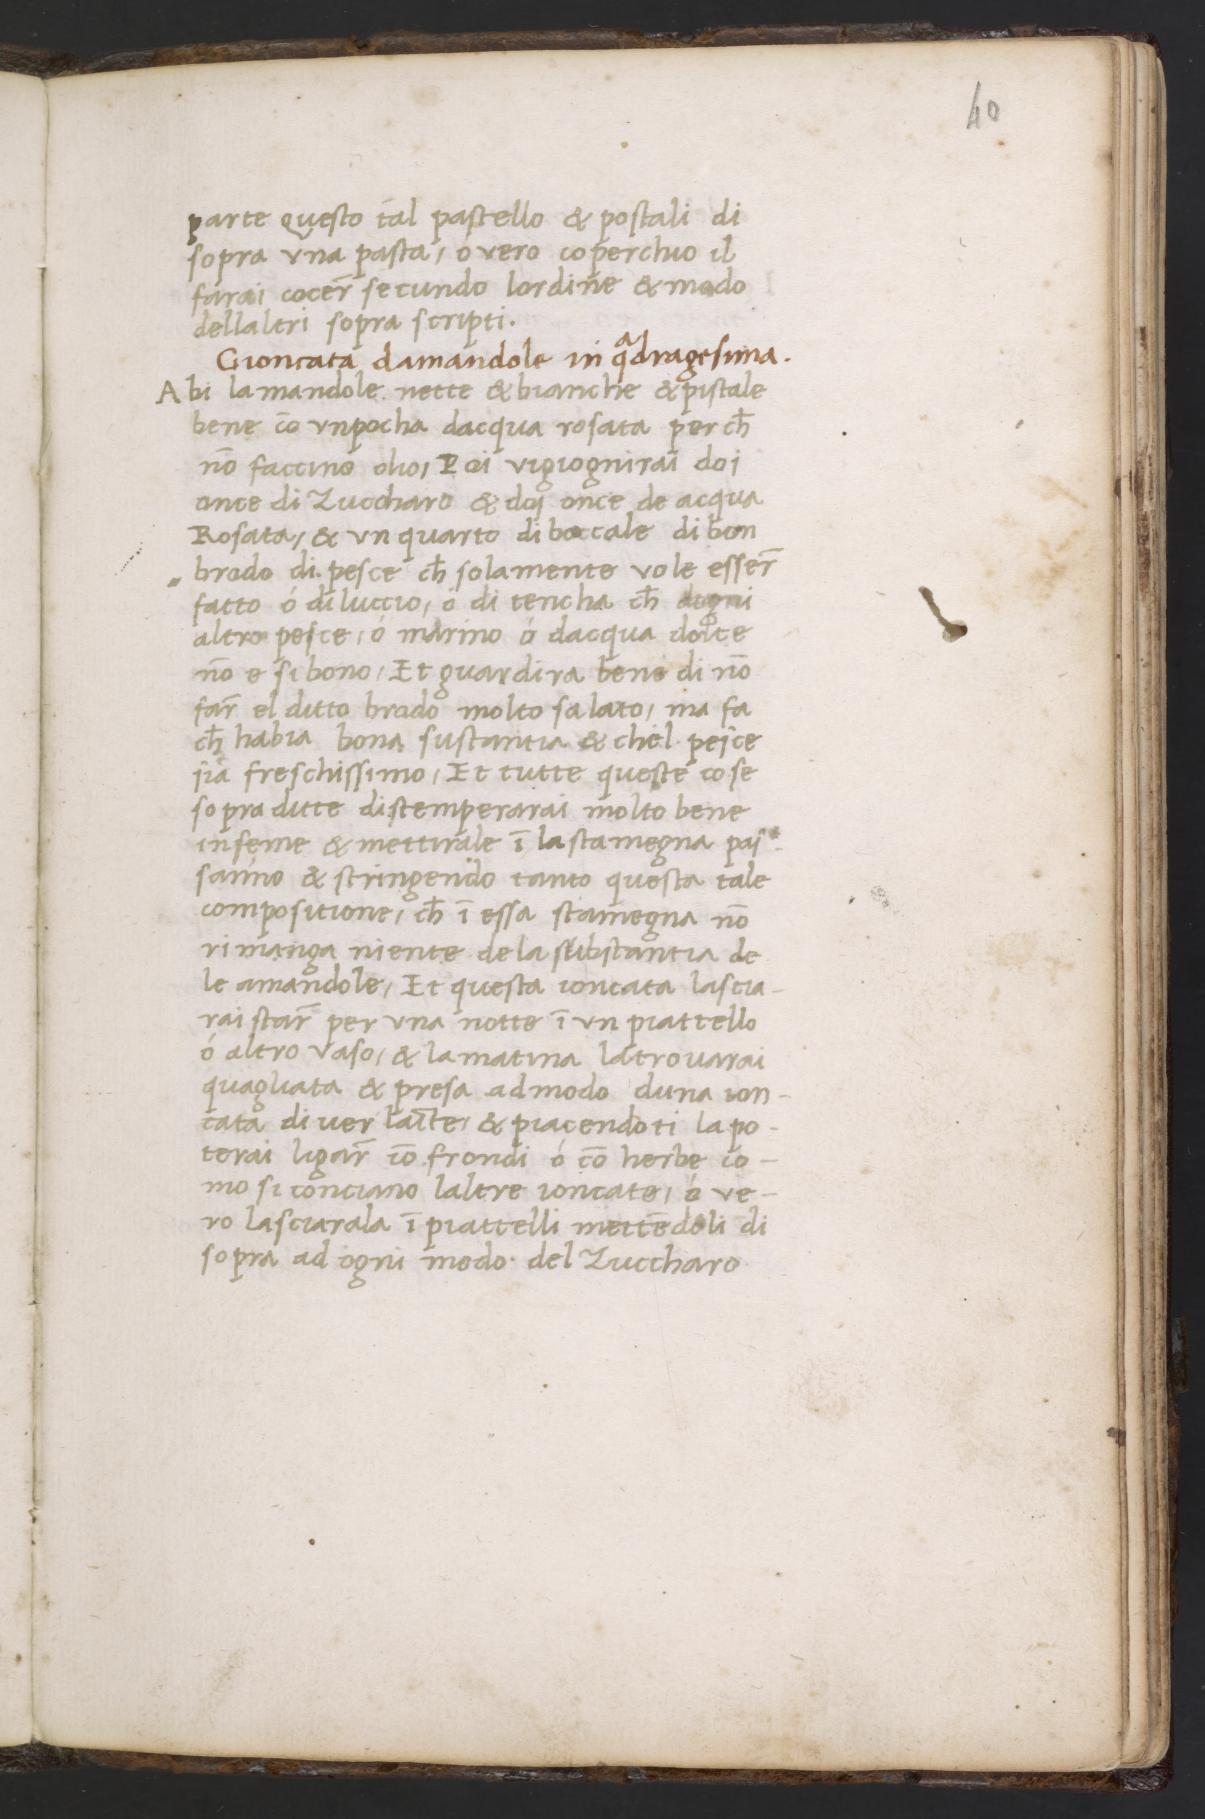 40
parte questo tal pastello & postali di
sopra vna pasta, o vero coperchio il
farai cocer̄ secundo lordine & modo
dellaltri sopra scripti.
Gioncata damandole in qͣdragesima.
Abi lamandole nette & bianche & pistale
bene cō vnpocha dacqua rosata perch̄
nō faccino olio, Poi vigiognirai doi
once di Zuccharo & doj once de acqua
Rosata, & vn quarto di boccale di bon
brodo di pesce ch̄ solamente vole esser̄
fatto ó di luccio, ó di tencha ch̄ dogni
altro pesce, ó marino ó dacqua dolce
nō e si bono, Et guardira bene di nō
far̄ el ditto brodo molto salato, ma fa
ch̄ habia bona sustantia & chel pesce
sia freschissimo, Et tutte queste cose
sopra ditte distemperarai molto bene
inseme & mettirale ī la stamegna pas
sanno & stringendo tanto questa tale
compositione, ch̄ ī essa stamegna nō
rimanga niente dela substantia de
le amandole, Et questa ioncata lascia-
rai star̄ per vna notte ī vn piattello
ó altro vaso, & la matina la trovarai
quagliata & presa ad modo duna ion-
cata di ver latte, & piacendoti la po-
terai ligar̄ cō frondi ó cō herbe co-
mo si conciano laltre ioncate, ó ve-
ro lasciarala ī piattelli mettēdoli di
sopra ad ogni modo del Zuccharo